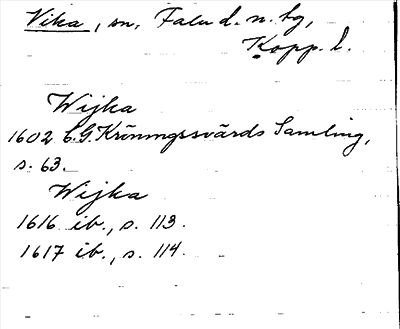 Vika, sn, Falu d. n. bg,
Kopp. l.
Wijka
1602 C.G. Kröningssvärds Samling,
s. 63.
Wijka
1616 ib., s. 113.
1617 ib., s. 114.